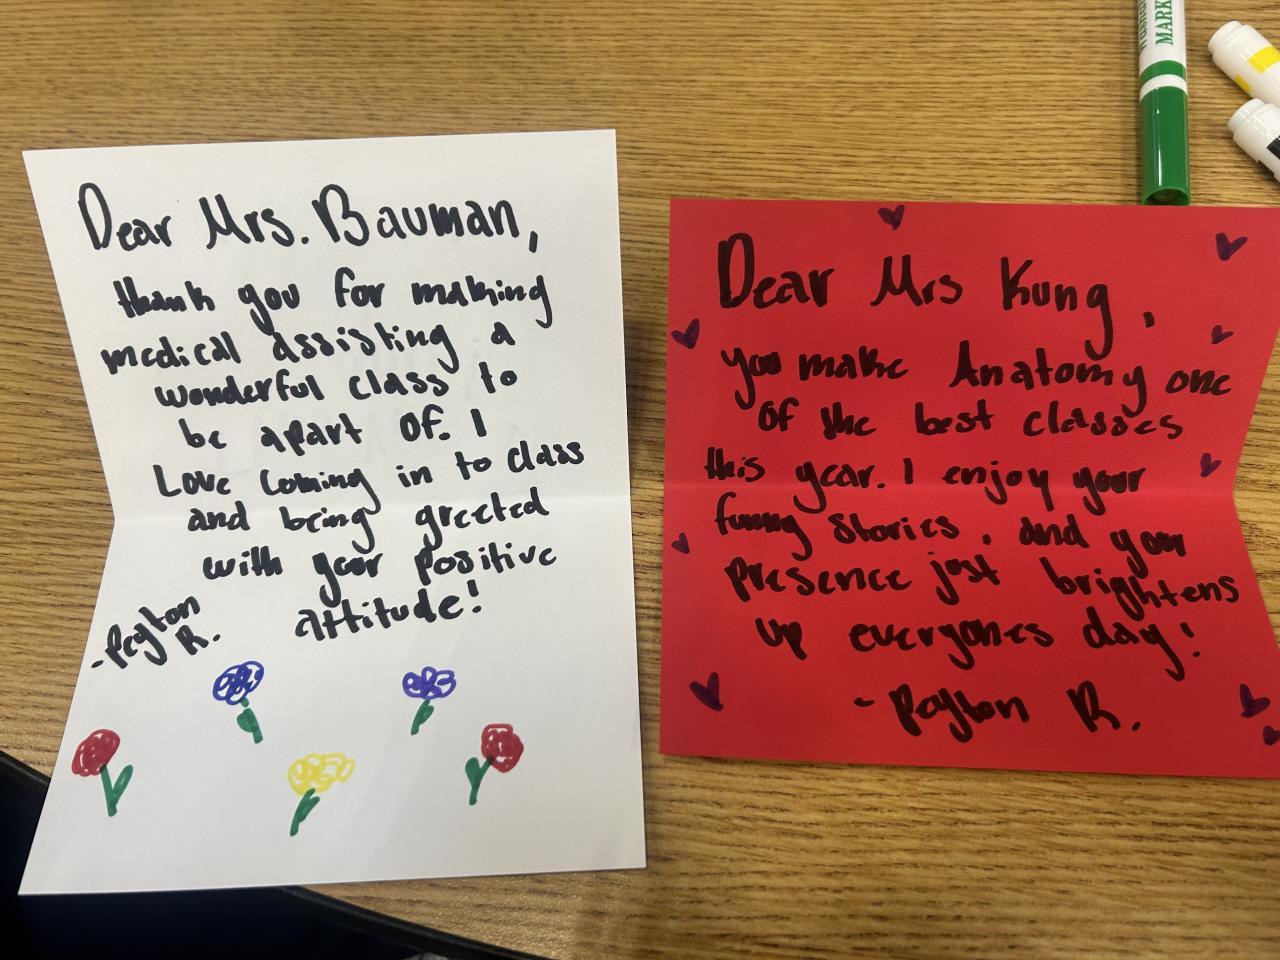 Dear Mrs. Bauman,
thank you for making
medical assisting a
wonderful class to
be apart of. I
Love coming in to class
and being greeted
with your positive
attitude!
-Peyton
R.
Dear Mrs Kung,
you make Anatomy one
of the best classes
this year. I enjoy your
funny stories, and your
presence just brightens
up everyones day!
- Peyton R.
MARK